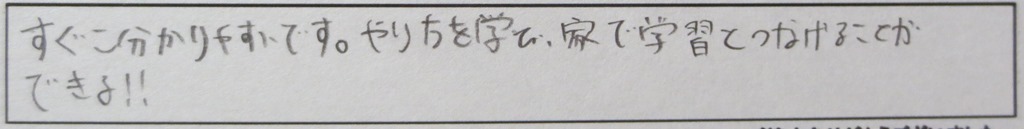 すぐこ分かりやすいです。やり方を学び、家で学習てつなげることが
できる!!